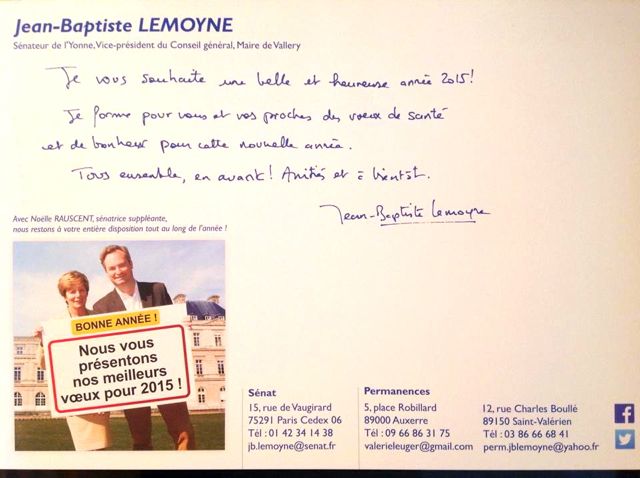 Jean-Baptiste LEMOYNE
Sénateur de l'Yonne, Vice-président du Conseil général, Maire de Vallery
Je vous souhaite une belle et heureuse année 2015!
Je forme pour vous et vos proches des voeux de santé
et de bonheur pour cette nouvelle année.
Tous ensemble, en avant! Amitiés et à bientôt.
Jean-Baptiste Lemoyne
Avec Noëlle RAUSCENT, sénatrice suppléante,
nous restons à votre entière disposition tout au long de l'année !
BONNE ANNÉE !
Nous vous
présentons
nos meilleurs
vœux pour 2015 !
Sénat
15, rue de Vaugirard
75291 Paris Cedex 06
Tél : 01 42 34 14 38
jb.lemoyne@senat.fr
Permanences
5, place Robillard
89000 Auxerre
Tél : 09 66 86 31 75
valerieleuger@gmail.com
12, rue Charles Boullé
89150 Saint-Valérien
Tél : 03 86 66 68 41
perm.jblemoyne@yahoo.fr